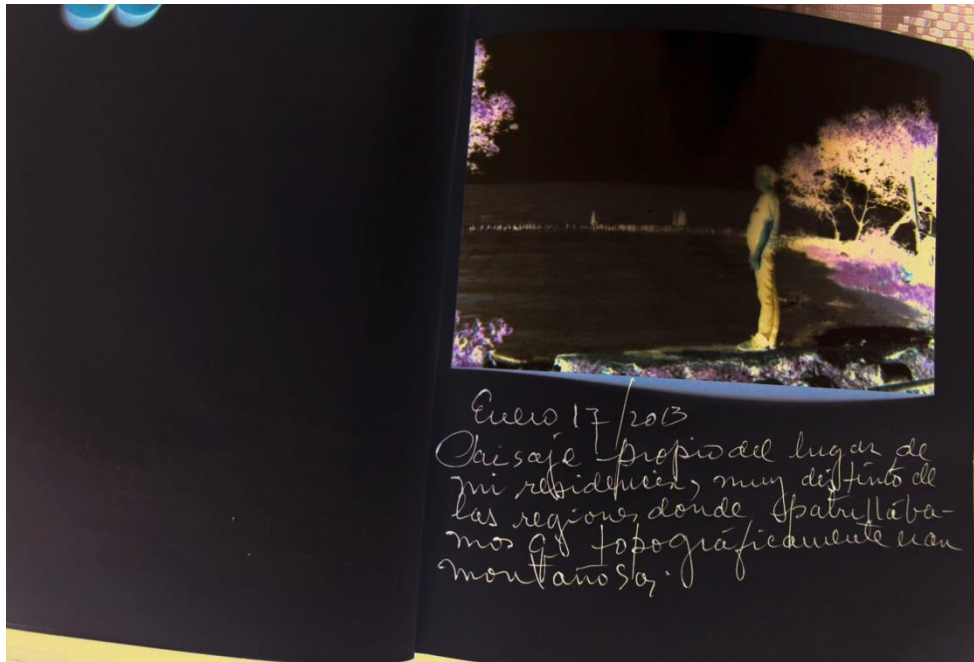 Enero 17/2013
Paisaje propio del lugar de
mi residencia, muy distinto de
las regiones donde patrullába-
mos qe topográficamente eran
montañosas.